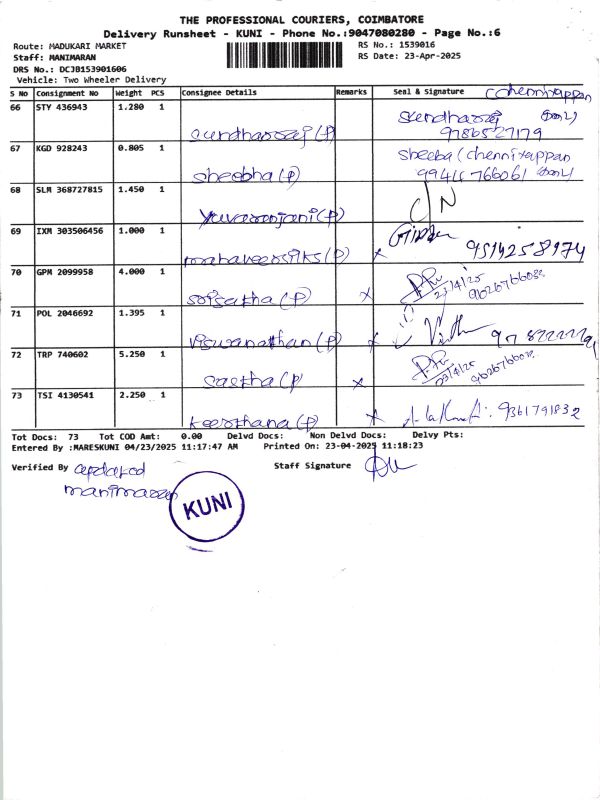 THE PROFESSIONAL COURIERS, COIMBATORE
Delivery Runsheet - KUNI - Phone No.:9047080280 - Page No.:6
Route: MADUKARI MARKET
RS No.: 1539016
Staff: MANIMARAN
RS Date: 23-Apr-2025
DRS No.: DCJB153901606
Vehicle: Two Wheeler Delivery
S No Consignment No Weight PCS Consignee Details Remarks Seal & Signature
66 STY 436943 1.280 1 Sundharraj (P) Sundharraj 9786527179
67 KGD 928243 0.805 1 Sheebha (P) Sheeba (chenniyappan
68 SLM 368727815 1.450 1 Yuvaranjani (P) C/N
69 IXM 303506456 1.000 1 mahaveersilks (P) x 9514258974
70 GPM 2099958 4.000 1 Srisastha (P) x 23/4/25
71 POL 2046692 1.395 1 Viswanathan (P) x
72 TRP 740602 5.250 1 Sastha (P) x 23/4/25
73 TSI 4130541 2.250 1 Keerthana (P) x 9361791832
Tot Docs: 73 Tot COD Amt: 0.00 Delvd Docs: Non Delvd Docs: Delvy Pts:
Entered By :MARESKUNI 04/23/2025 11:17:47 AM Printed On: 23-04-2025 11:18:23
Verified By updated Staff Signature
manimaran
KUNI